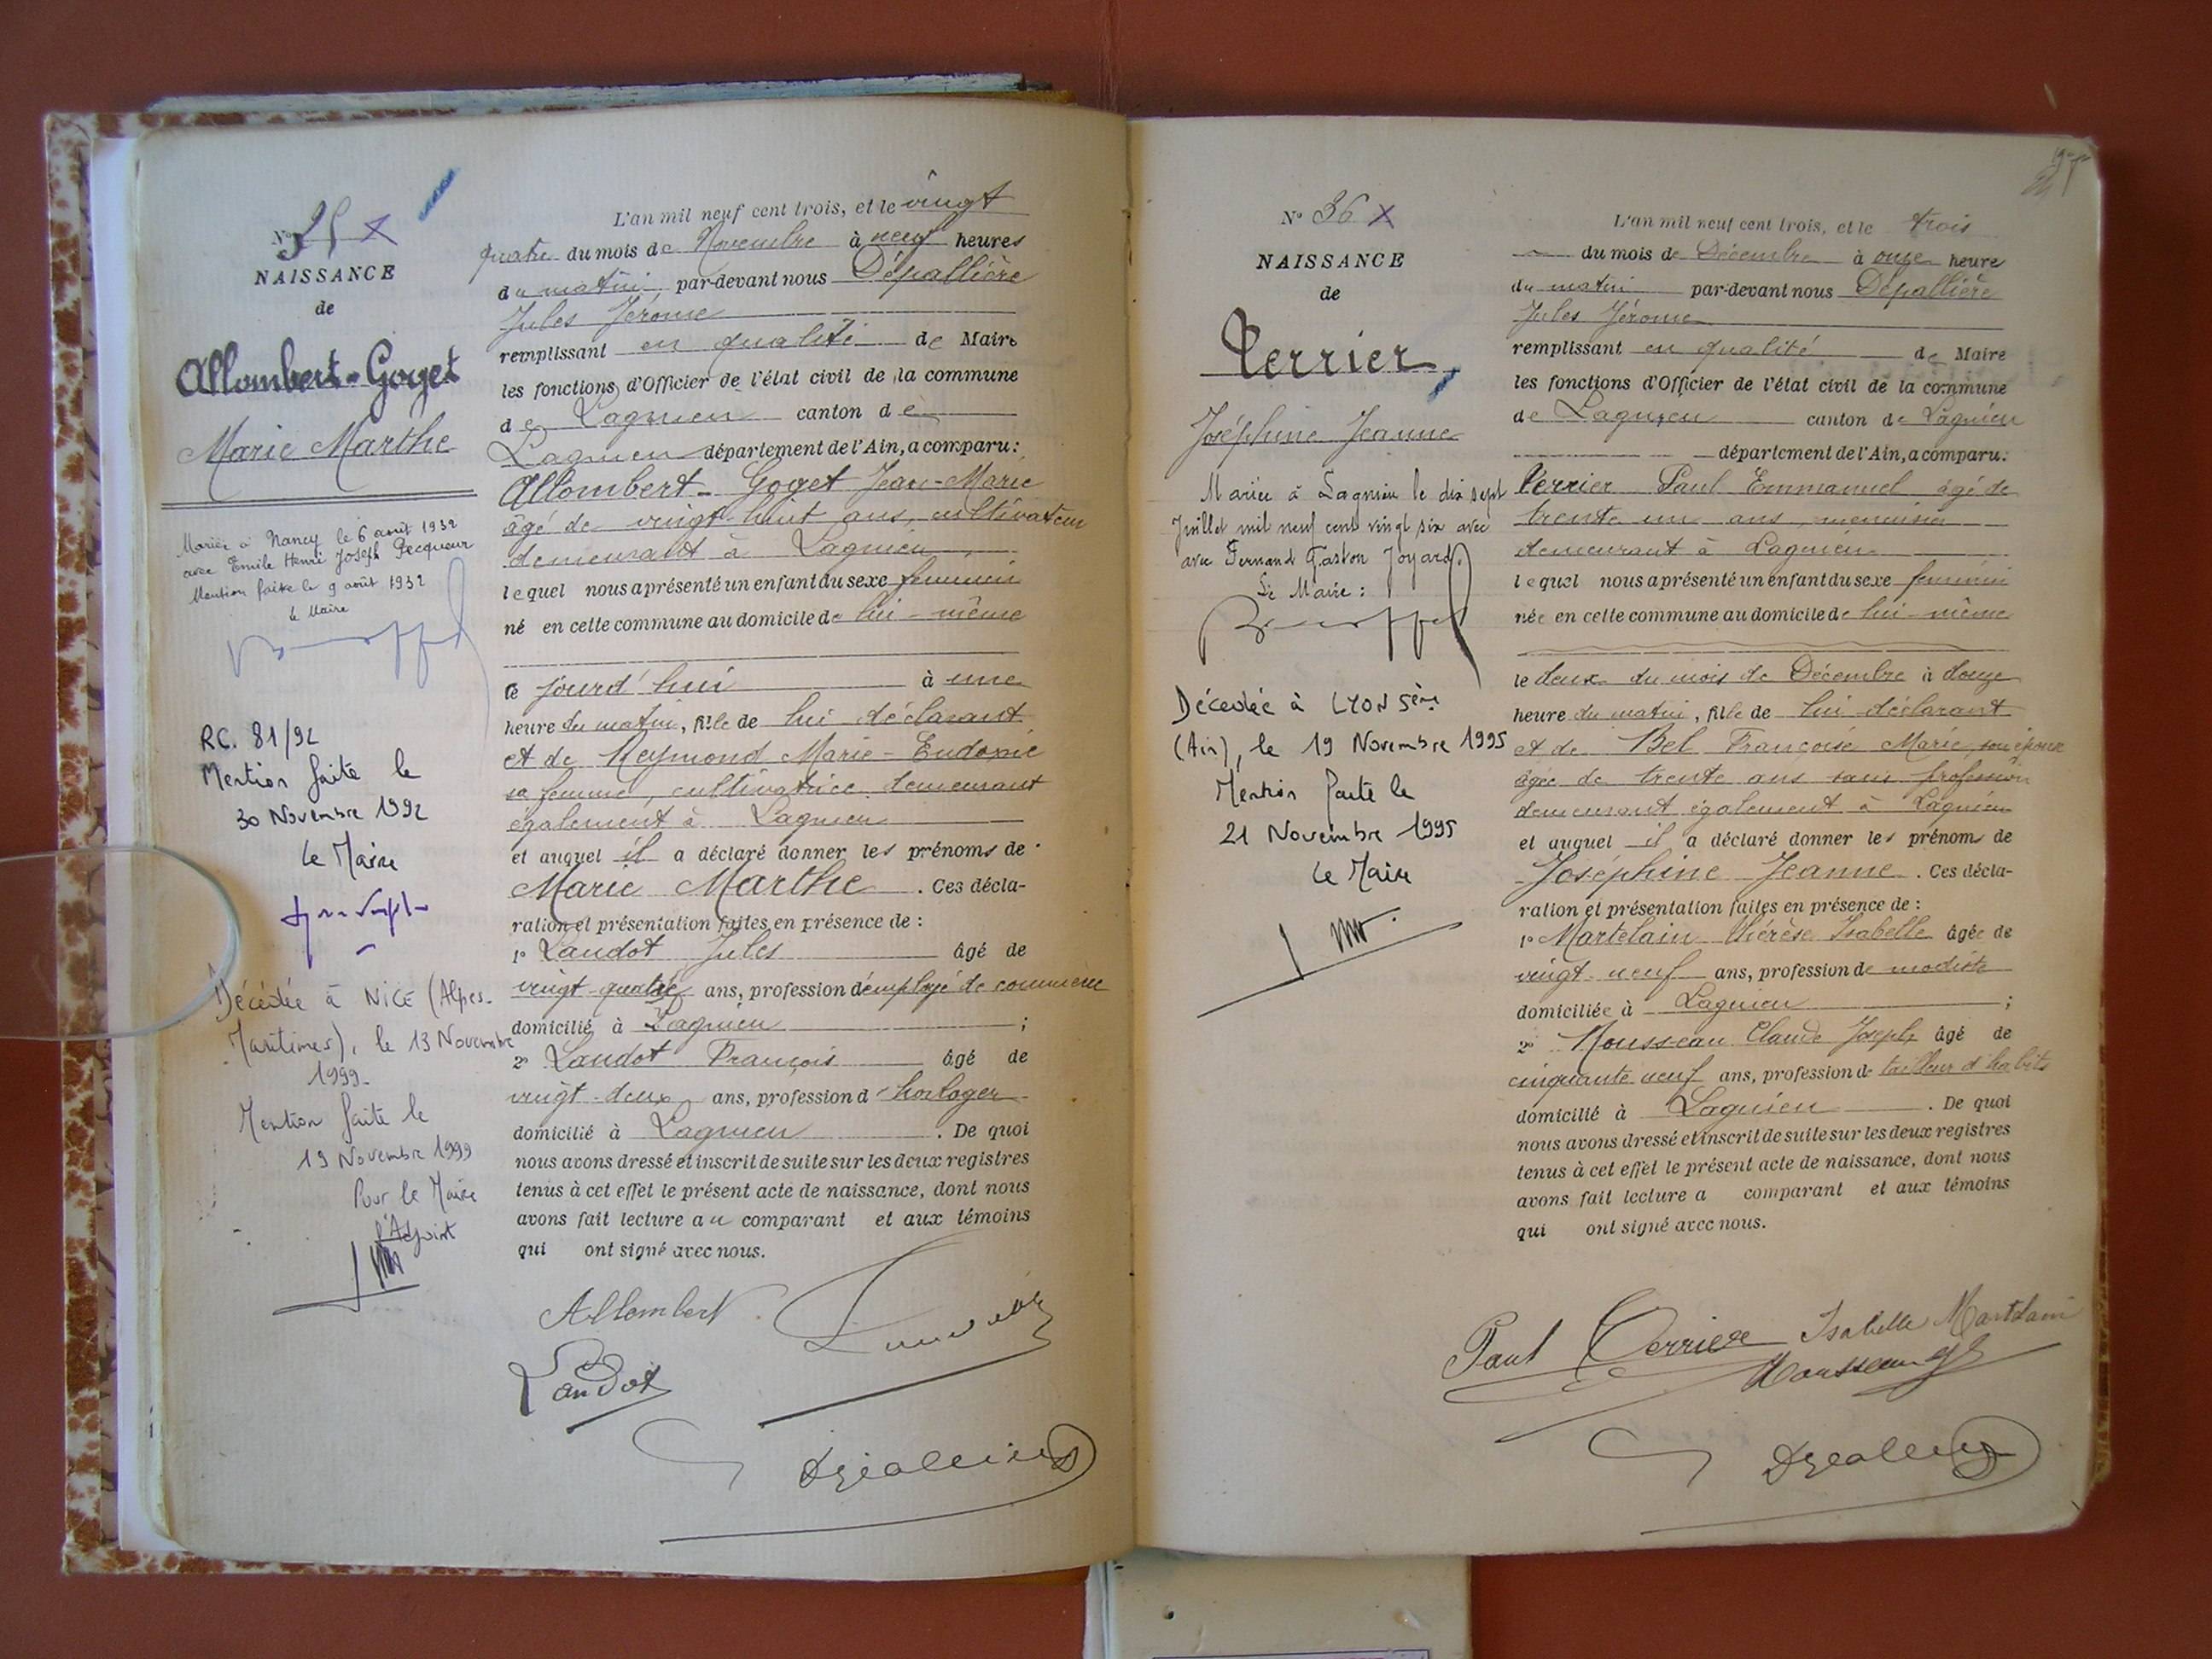 N° 35 X
NAISSANCE
de
Allombert-Goget
Marie Marthe
Mariée à Nancy le 6 août 1932
avec Emile Henri Joseph Pecqueur
Mention faite le 9 août 1932
le Maire
RC. 81/92
Mention faite le
30 Novembre 1992
Le Maire
Décédée à NICE (Alpes-
Maritimes), le 13 Novembre
1999-
Mention faite le
19 Novembre 1999
Pour le Maire
l'Adjoint
L'an mil neuf cent trois, et le vingt
quatre du mois de Novembre à neuf heures
du matin par-devant nous Dépallière
Jules Jérome
remplissant en qualité de Maire
les fonctions d'Officier de l'état civil de la commune
de Lagnieu canton de
Lagnieu département de l'Ain, a comparu:
Allombert-Goget Jean-Marie
âgé de vingt-huit ans, cultivateur
demeurant à Lagnieu
lequel nous a présenté un enfant du sexe féminin
né en cette commune au domicile de lui-même
ce jourd'hui à une
heure du matin, fille de lui déclarant
et de Reymond Marie-Eudoxie
sa femme, cultivatrice demeurant
également à Lagnieu
et auquel il a déclaré donner les prénoms de
Marie Marthe. Ces décla-
ration et présentation faites en présence de :
1° Laudot Jules âgé de
vingt-quatre ans, profession d'employé de commerce
domicilié à Lagnieu ;
2° Laudot François âgé de
vingt-deux ans, profession d'horloger
domicilié à Lagnieu. De quoi
nous avons dressé et inscrit de suite sur les deux registres
tenus à cet effet le présent acte de naissance, dont nous
avons fait lecture au comparant et aux témoins
qui ont signé avec nous.
Allombert
Laudot
N° 36 X
NAISSANCE
de
Perrier
Joséphine Jeanne
Mariée à Lagnieu le dix sept
Juillet mil neuf cent vingt six avec
avec Fernand Gaston Joyard.
Le Maire :
Décédée à LYON 5ème
(Ain), le 19 Novembre 1995
Mention faite le
21 Novembre 1995
Le Maire
L'an mil neuf cent trois, et le trois
du mois de Décembre à onze heure
du matin par-devant nous Dépallière
Jules Jérome
remplissant en qualité de Maire
les fonctions d'Officier de l'état civil de la commune
de Lagnieu canton de Lagnieu
département de l'Ain, a comparu:
Perrier Paul Emmanuel âgé de
trente un ans, menuisier
demeurant à Lagnieu
lequel nous a présenté un enfant du sexe féminin
née en cette commune au domicile de lui-même
le deux du mois de Décembre à douze
heure du matin, fille de lui déclarant
et de Bel Françoise Marie, son épouse
âgée de trente ans sans profession
demeurant également à Lagnieu
et auquel il a déclaré donner les prénoms de
Joséphine Jeanne. Ces décla-
ration et présentation faites en présence de :
1° Martelain Thérèse Isabelle âgée de
vingt-neuf ans, profession de modiste
domiciliée à Lagnieu ;
2° Mousseau Claude Joseph âgé de
cinquante neuf ans, profession de tailleur d'habits
domicilié à Lagnieu. De quoi
nous avons dressé et inscrit de suite sur les deux registres
tenus à cet effet le présent acte de naissance, dont nous
avons fait lecture a comparant et aux témoins
qui ont signé avec nous.
Paul Perrier Isabelle Martelain
Mousseau